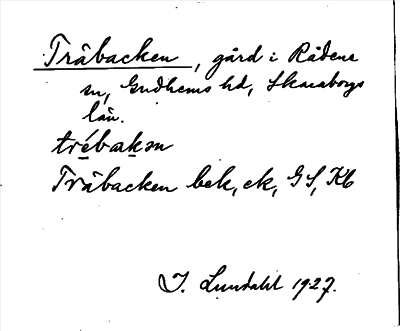 Träbacken, gård i Rådene
sn, Gudhems hd, Skaraborgs
län.
trébakən
Träbacken bek, ek, GS, Kb
I. Lundahl 1927.